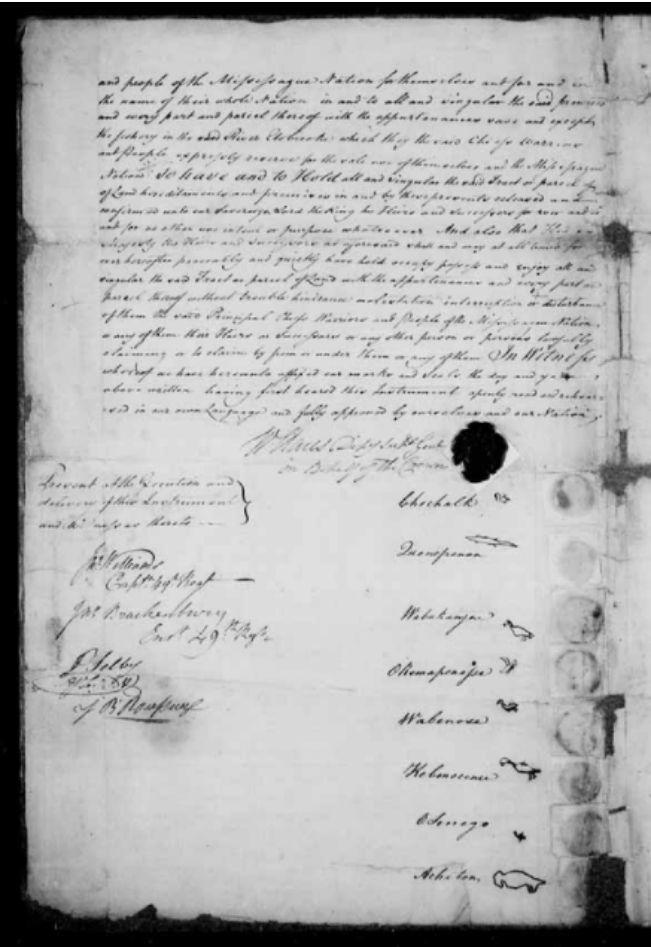 and people of the Missisague Nation for themselves and for and in
the name of their whole Nation in and to all and singular the said premises
and every part and parcel thereof with the appurtenances save and except
the fishery in the said River Etobicoke which they the said Chiefs Warriors
and People expressly reserve for the sole use of themselves and the Missisague
Nation To have and to Hold all and singular the said Tract or parcel
of Land hereditaments and premises in and by these presents released and
confirmed unto our Sovereign Lord the King his Heirs and Successors for ever and
and for no other use intent or purpose whatsoever And also that His
Majesty his Heirs and Successors as aforesaid shall and may at all times for
ever hereafter peaceably and quietly have hold occupy possess and enjoy all and
singular the said Tract or parcel of Land with the appurtenances and every part or
parcel thereof without trouble hindrance molestation interruption or disturbance
of them the said Principal Chiefs Warriors and People of the Missisague Nation
or any of them their Heirs or Successors or any other person or persons lawfully
claiming or to claim by from or under them or any of them In Witness
whereof we have hereunto affixed our marks and Seals the day and year
above written having first heard this Instrument openly read and
in our own Language and fully approved by ourselves and our Nation
W Claus Depy Supt Genl
on Behalf of the Crown
Present at the Execution and
delivery of this Instrument
and Witnesses thereto
Chechalk
Quenepenon
Jn Williams
Capt 49th Regt
Wabakanyne
Jno Brackenbury
Ens 49th Regt
Okemapenesse
P. Selby
J B Rousseau
Wabenose
Kebonecence
Osenego
Acheton